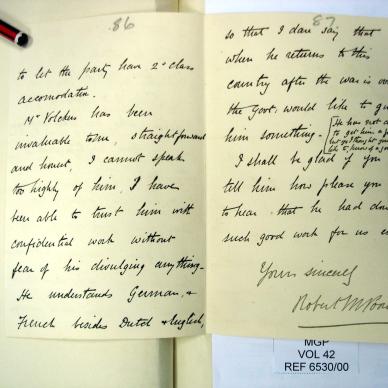 86
to let the party have 2ⁿ class
accomodation.
Mʳ Volckers has been
invaluable to me, straightforward
and honest, I cannot speak
too highly of him, I have
been able to trust him with
confidential work without
fear of his divulging anything –
He understands German, &
French besides Dutch & English,
87
so that I dare say that
when he returns to this
country after the war is ov
the Govt. would like to gi
him something –
[He has not
to get him a
but
like to
I shall be glad if you
tell him how please you
to hear that he had don
such good work for us
Yours sincerely
Robert M Poo
MGP
VOL 42
REF 6530/00